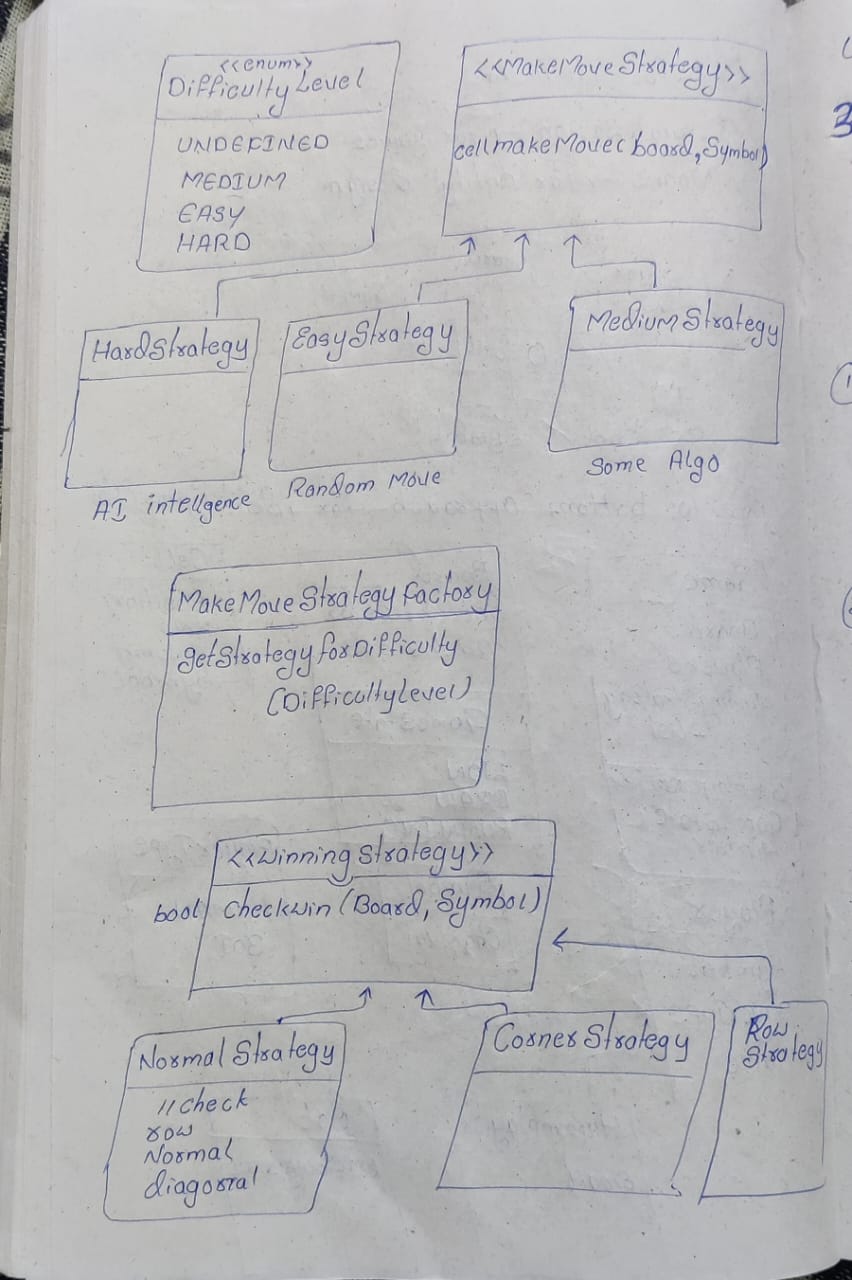 <<enum>>
Difficulty Level
UNDEFINED
MEDIUM
EASY
HARD
<<MakeMoveStrategy>>
cell makeMove( board, Symbol)
3
HardStrategy
EasyStrategy
MediumStrategy
AI intellgence
Random Move
Some Algo
MakeMoveStrategy Factory
getStrategy for Difficulty
(DifficultyLevel)
<<Winning Strategy>>
bool checkwin (Board, Symbol)
Normal Strategy
// check
row
Normal
diagonal
Corner Strategy
Row
Strategy